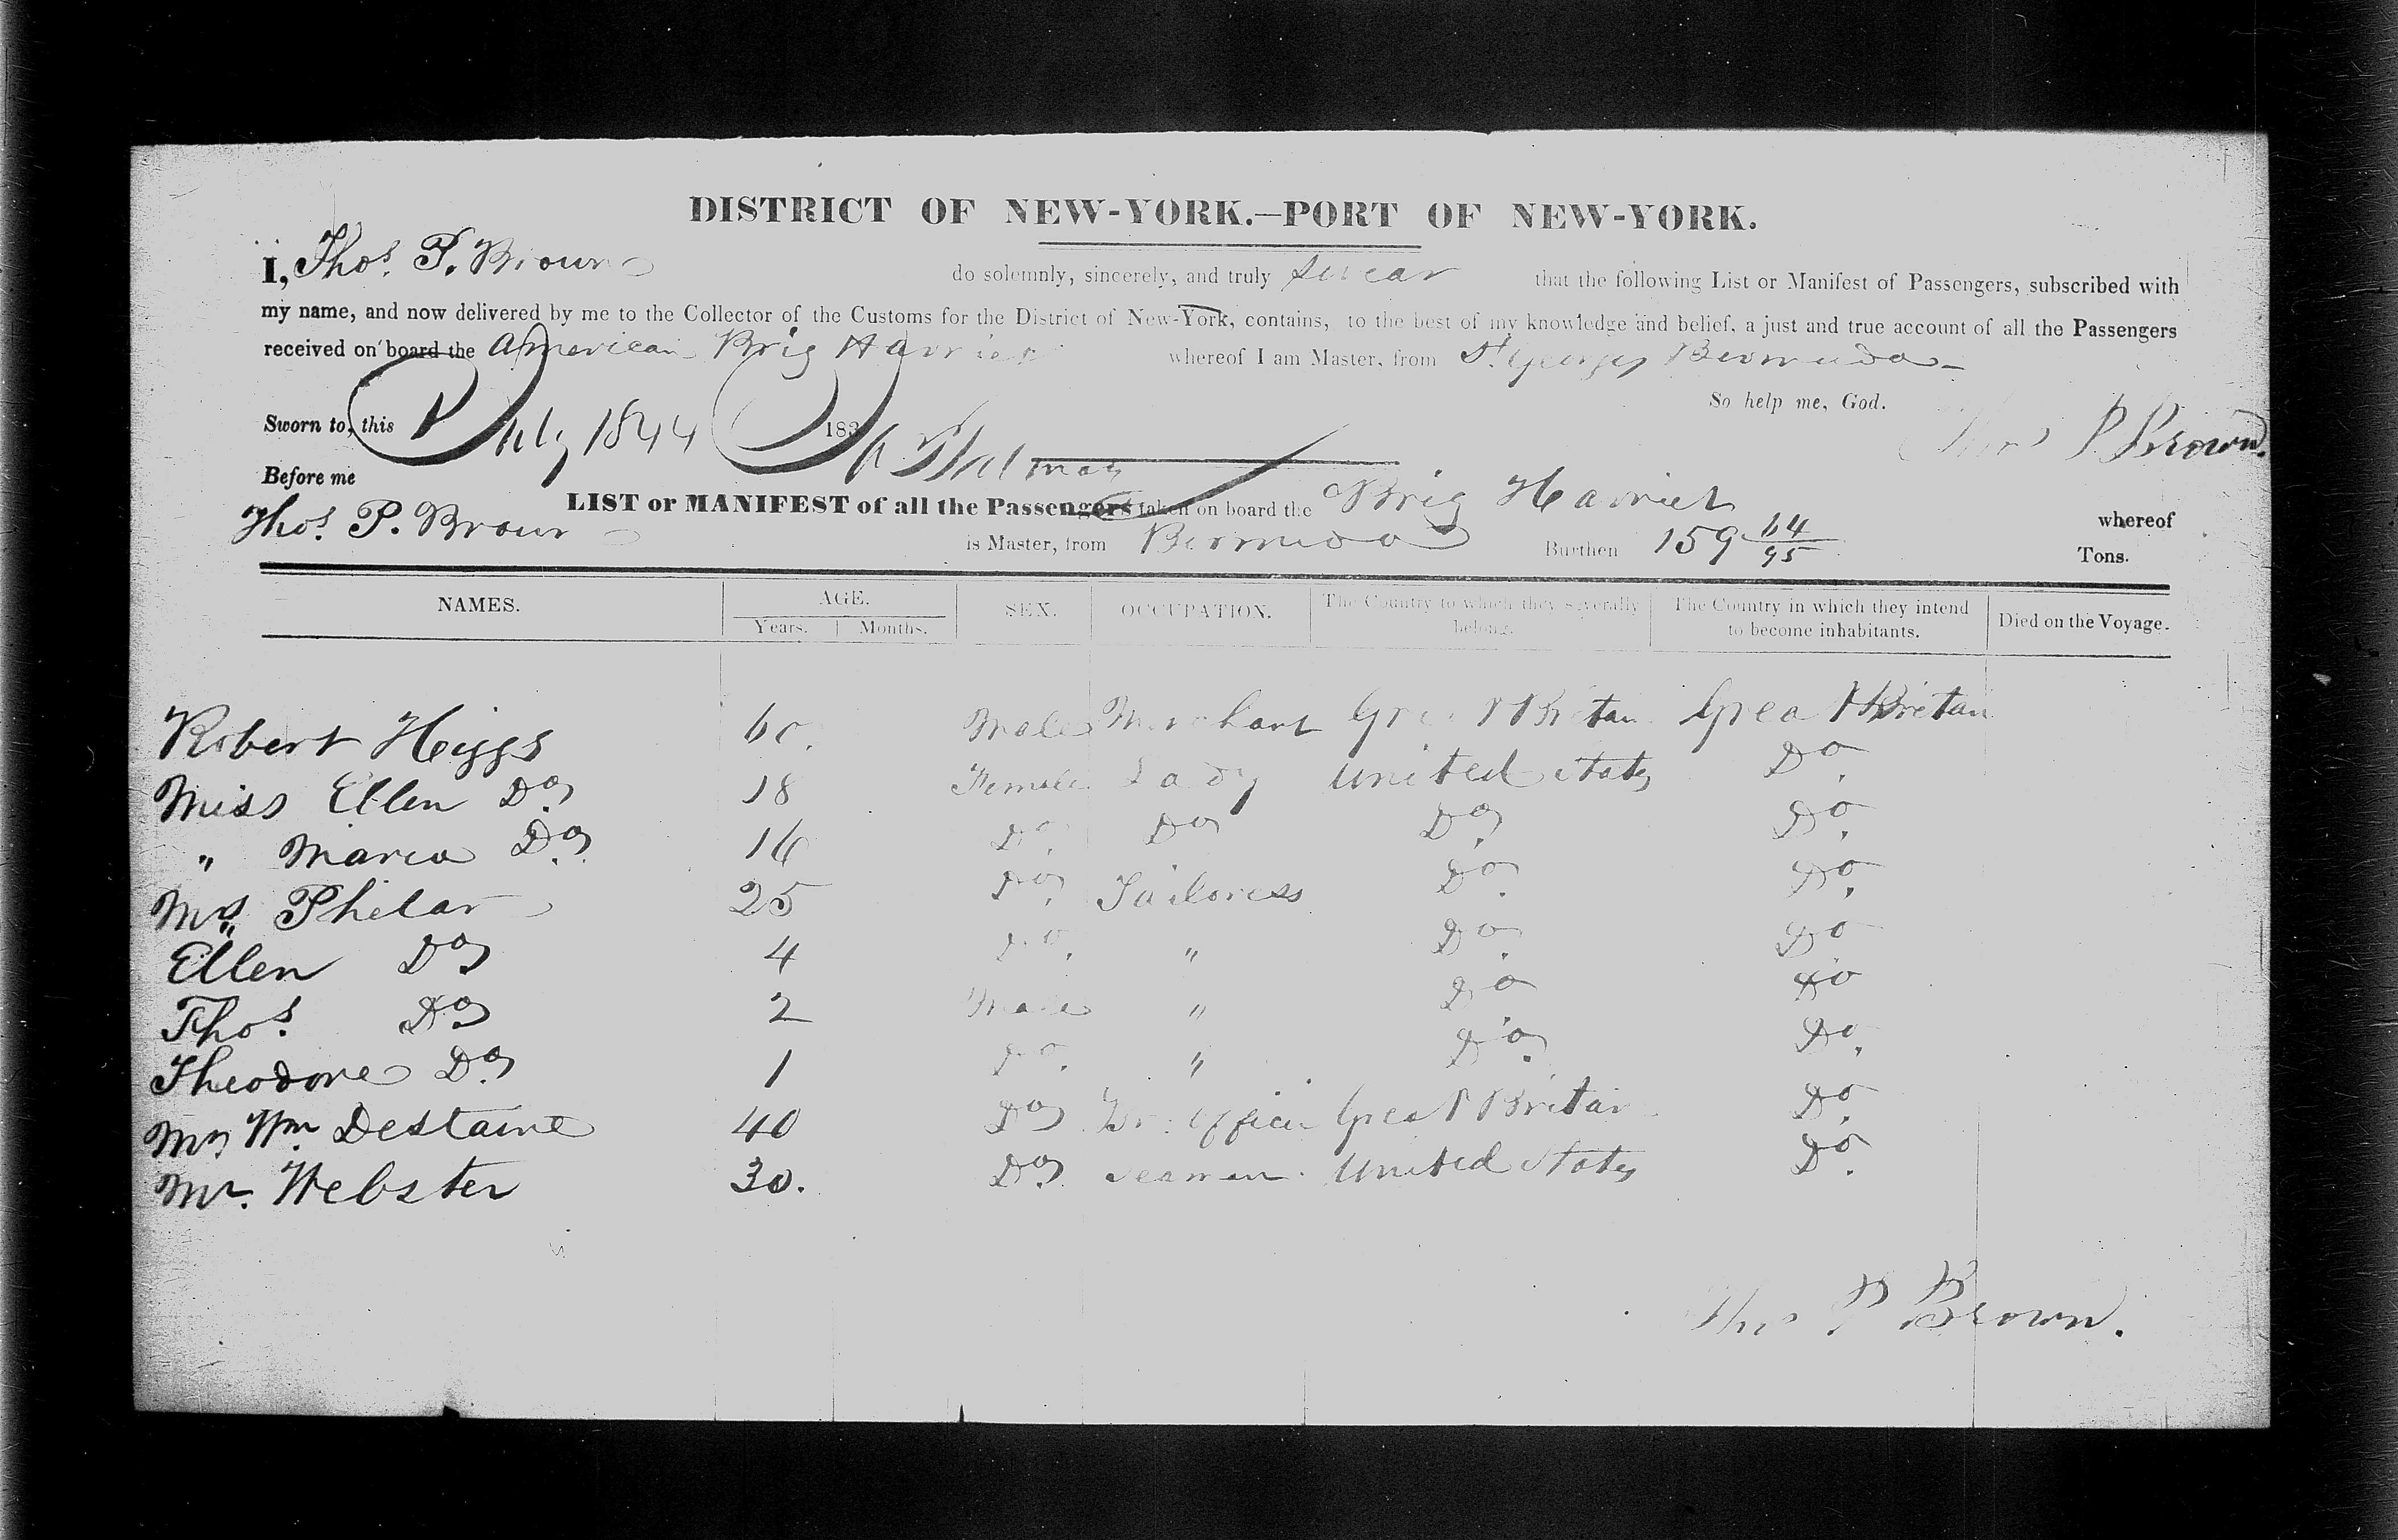 DISTRICT OF NEW-YORK.—PORT OF NEW-YORK.
I, Thos. P. Brown do solemnly, sincerely, and truly swear that the following List or Manifest of Passengers, subscribed with
my name, and now delivered by me to the Collector of the Customs for the District of New-York, contains, to the best of my knowledge and belief, a just and true account of all the Passengers
received on board the American Brig Harriet whereof I am Master, from St. Georges Bermuda
So help me, God.
Sworn to, this July 1844 183 Thos P Brown.
Before me
LIST or MANIFEST of all the Passengers taken on board the Brig Harriet whereof
Thos. P. Brown is Master, from Bermuda Burthen 159 64/95 Tons.
NAMES. AGE. SEX. OCCUPATION. The Country to which they severally belong. The Country in which they intend to become inhabitants. Died on the Voyage.
Years. Months.
Robert Higgs 60. Male Merchant Great Britan Great Britan
Miss Ellen Do. 18 Female Lady United States Do.
" Maria Do. 16 Do. Do Do. Do.
Mrs. Phelan 25 Do. Tailoress Do. Do.
Ellen Do. 4 Do. " Do. Do
Thos. Do. 2 Male " Do Do
Theodore Do. 1 Do. " Do. Do.
Mr. Wm. Destaine 40 Do Br. Officer Great Britan Do.
Mr. Webster 30. Do. Seaman. United States Do.
Thos P Brown.